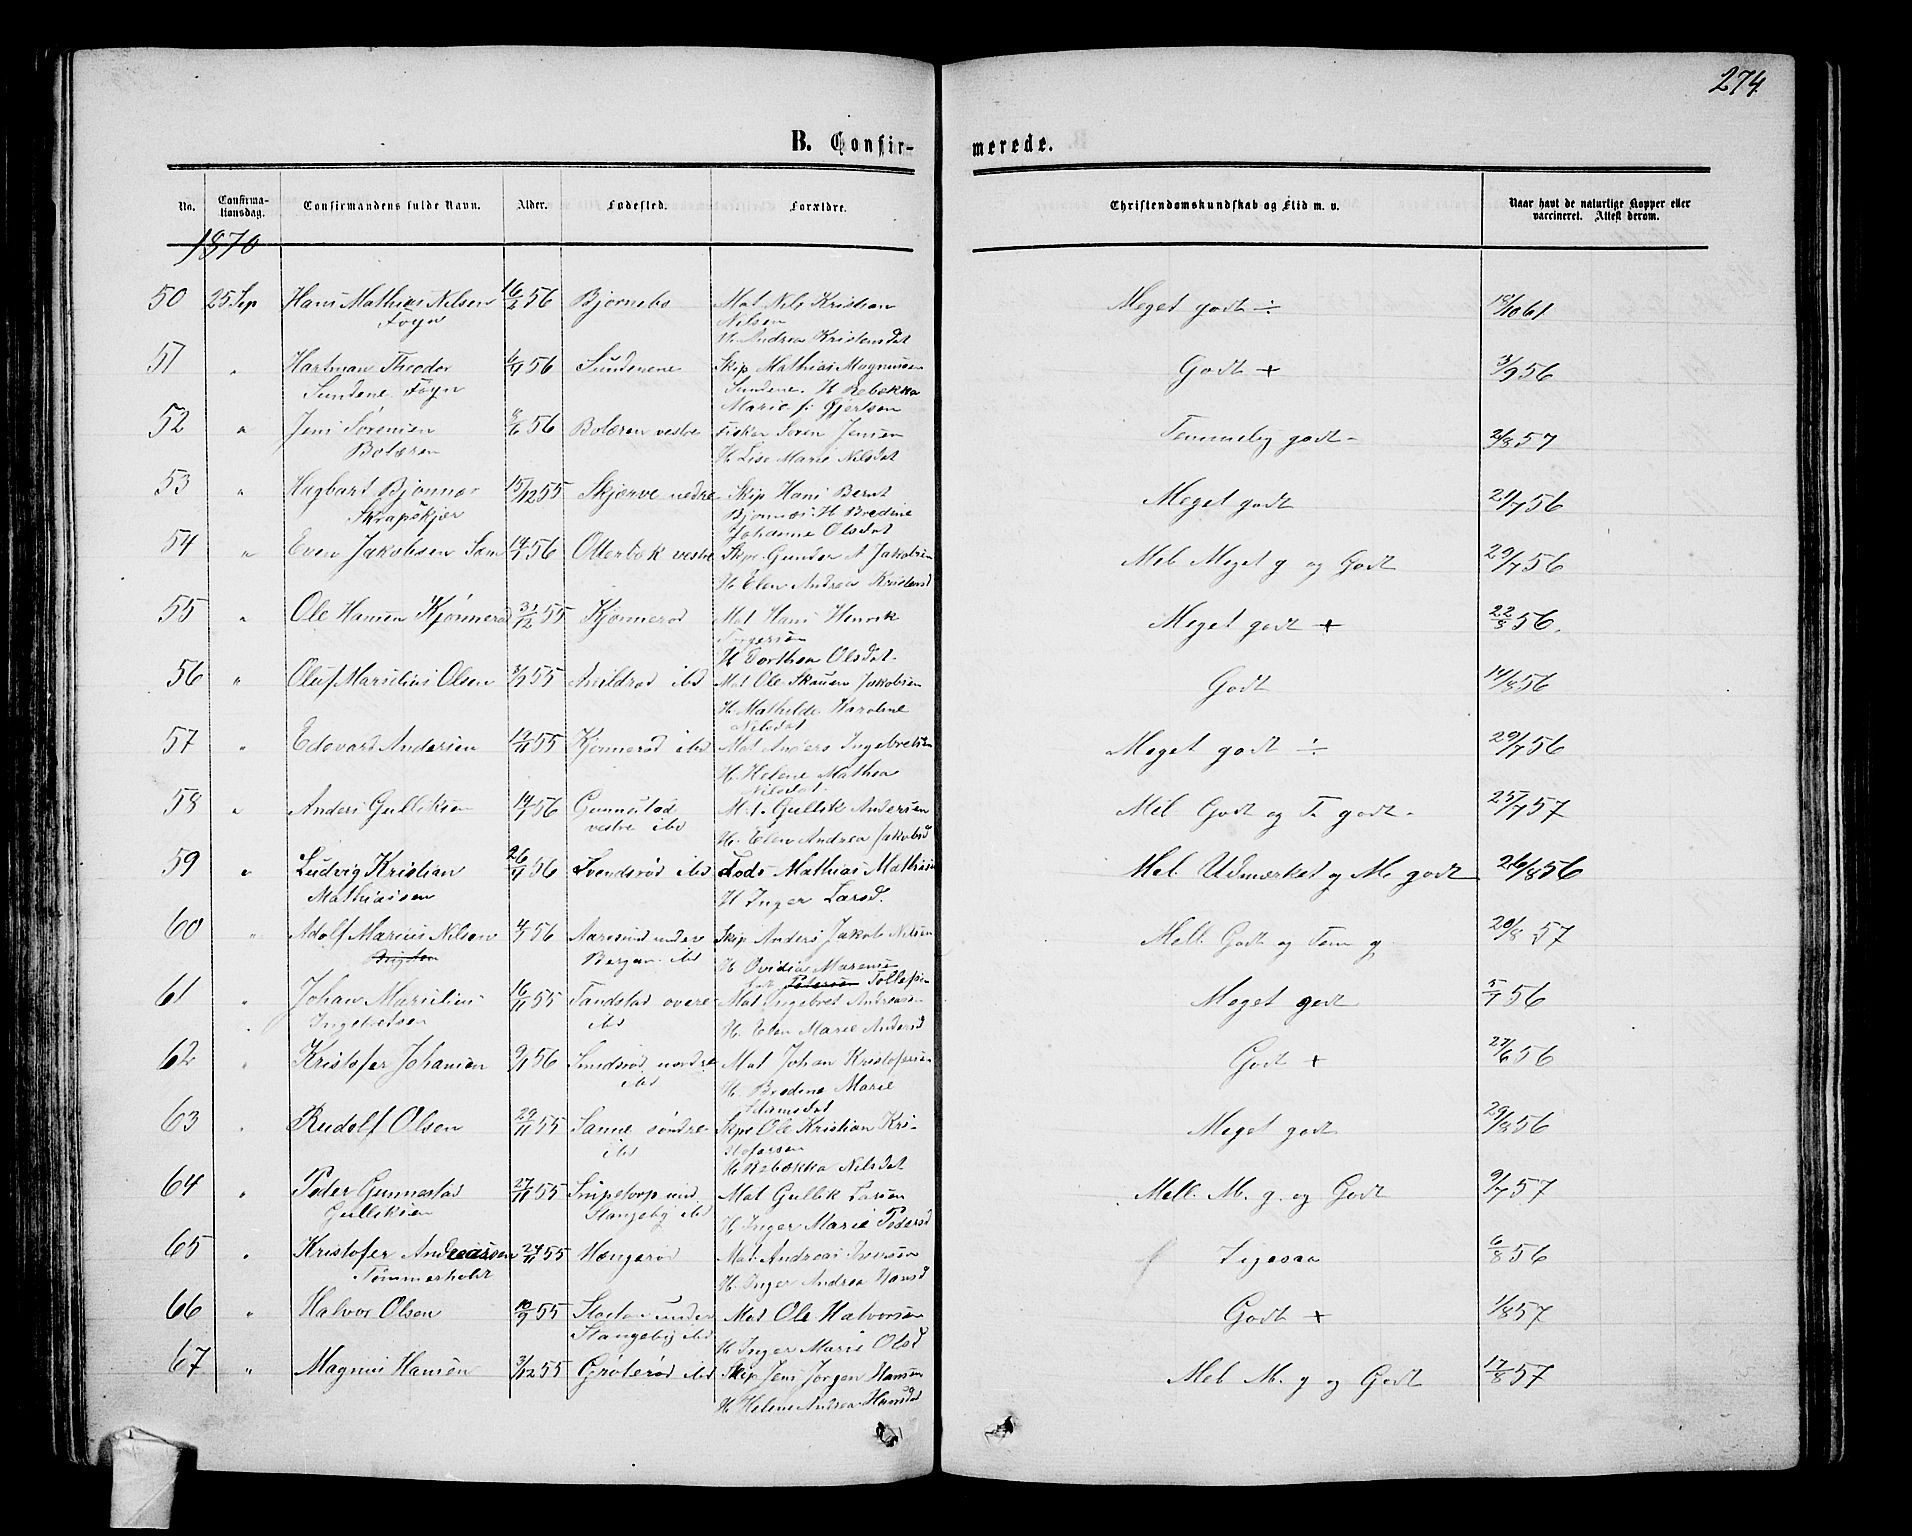 274
B. Confir-
merede.
No.
Confirma-
tionsdag.
Confirmandens fulde Navn.
Alder.
Fødested.
Forældre.
Christendomskundskab og Flid m. v.
Naar havt de naturlige Kopper eller
vaccineret. Attest derom.
1870
50 25 Sep Hans Mathias Nilsen 16/2 56 Bjørnebo Mat Nils Kristian Meget godt ÷ 18/10 61
Føyn Nilsen
H. Andrea Kristensdat
51 " Hartman Theodor 6/4 56 Sundenene Skip Mathias Magnusen Godt + 3/9 56
Sundene Føyn Sundene. H Rebekka
Marie f. Gjertsen
52 " Jens Sørensen 8/6 56 Bolæren vestre Fisker Søren Jensen Temmelig godt - 2/8 57
Bolæren H Lise Marie Nilsdat
53 " Hagbart Bjønnes 15/12 55 Skjærve nedre Skip Hans Bernt Meget godt 21/7 56
Skrapeskjær Bjønnes H Bredine
Johanne Olsdat
54 " Even Jakobsen 14/1 56 Otterbek vestre Skip Gunder A Jakobsen Mel. Meget g og Godt 29/7 56
H. Elen Andrea Kristensd
55 " Ole Hansen Kjønnerød 31/12 55 Kjønnerød Mat Hans Henrik Meget godt + 22/8 56.
H Dorthea Olsdat.
56 " Oluf Marulius Olsen 55 Arildrød ibd Mat Ole Skauen Jakobsen Godt 14/8 56
H Mathilde Karoline
Nilsdat
57 " Edevard Andersen 55 Kjønnerød ibd Mat Anders Ingebretsen Meget godt ÷ 29/7 56
H. Helene Mathea
Nilsdat.
58 " Anders Gulliksen 14/1 56 Gunnestad Mat. Gullik Andersen Mel. Godt og T. godt - 25/7 57
vestre ibd H. Elen Andrea Jakobsd
59 " Ludvig Kristian 26/4 56 Svendsrød ibd Lods Mathias Mathisen Mel. Udmærket og M. godt 26/8 56
Mathiasen H Inger Larsd.
60 " Adolf Marius Nilsen 4/1 56 Aarøsund under Skip Anders Jakob Nilsen Mell. Godt og Tem g. 20/8 57
Bergan ibd H Ovidia Marensen
Petersen Tollefsen
61 " Johan Marulius 16/11 55 Tandstad øvere Mat Ingebret Andreasen Meget godt 5/7 56
Ingebretsen ibd H. Elen Marie Andersd
62 " Kristofer Johansen 9/1 56 Smidsrød nordre Mat Johan Kristofersen Godt + 27/6 56
ibd H. Bredine Marie
Adamsdat
63 " Rudolf Olsen 29/11 55 Sanne søndre Skip Ole Kristian Kri- Meget godt 29/8 56
ibd stofersen
H Rebekka Nilsdat
64 " Peder Gunnestad 27/11 55 Snipetorp und. Mat Gullik Larsen Mell. M. g. og Godt 9/7 57
Gulliksen Stangeby ibd H Inger Marie Pedersd
65 " Kristofer Andreasen 24/11 55 Hængerød Mat Andreas Iversen Ligesaa 6/8 56
Tømmerholt H. Inger Andrea Hansd
66 " Halvor Olsen 10/9 55 under Mat Ole Halvorsen Godt + 1/8 57
Stangeby ibd H Inger Marie Olsd
67 " Magnus Hansen 3/12 55 Grøterød ibd Skip Jens Jørgen Hansen Mel M. g og Godt 17/8 57
H Helene Andrea Hansdat